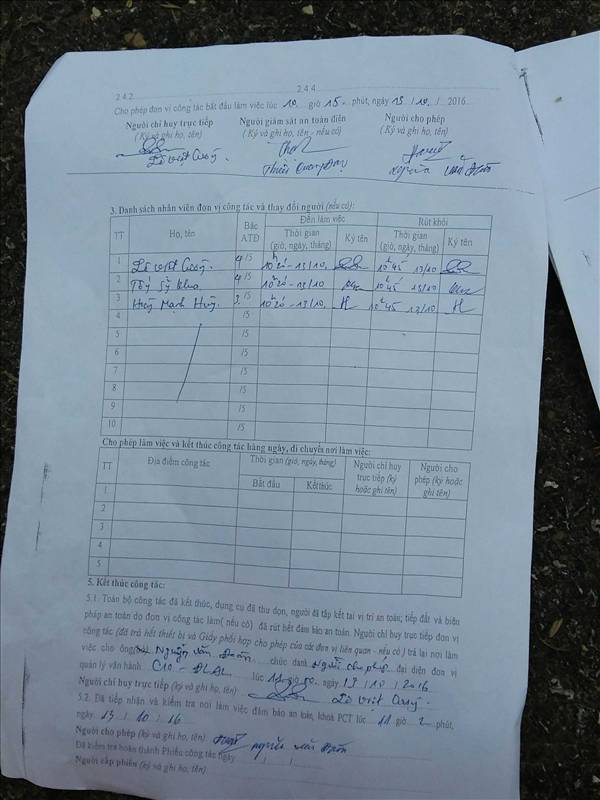 2.4.2 2.4.4
Cho phép đơn vị công tác bắt đầu làm việc lúc 10 giờ 15 phút, ngày 13 / 10 / 2016
Người chỉ huy trực tiếp Người giám sát an toàn điện Người cho phép
(Ký và ghi họ, tên) (Ký và ghi họ, tên - nếu có) (Ký và ghi họ, tên)
Lê Việt Cường
3. Danh sách nhân viên đơn vị công tác và thay đổi người (nếu có):
TT Họ, tên Bậc ATĐ Đến làm việc Rút khỏi
Thời gian (giờ, ngày, tháng) Ký tên Thời gian (giờ, ngày, tháng) Ký tên
1 Lê Việt Cường 4/5 10h20 - 13/10 10h45 13/10
2 4/5 10h20 - 13/10 10h45 13/10
3 Mạnh 3/5 10h20 - 13/10 H 10h45 13/10 H
4 /5
5 /5
6 /5
7 /5
8 /5
9 /5
10 /5
Cho phép làm việc và kết thúc công tác hàng ngày, di chuyển nơi làm việc:
TT Địa điểm công tác Thời gian (giờ, ngày, tháng) Người chỉ huy trực tiếp (ký hoặc ghi tên) Người cho phép (ký hoặc ghi tên)
Bắt đầu Kết thúc
1
2
3
4
5
5. Kết thúc công tác:
5.1. Toàn bộ công tác đã kết thúc, dụng cụ đã thu dọn, người đã tập kết tại vị trí an toàn; tiếp đất và biện
pháp an toàn do đơn vị công tác làm( nếu có) đã rút hết đảm bảo an toàn. Người chỉ huy trực tiếp đơn vị
công tác (đã trả hết thiết bị và Giấy phối hợp cho phép của các đơn vị liên quan - nếu có) trả lại nơi làm
việc cho ông Nguyễn Văn chức danh Người cho phép đại diện đơn vị
quản lý vận hành lúc ngày 13 / 10 / 2016
Người chỉ huy trực tiếp (ký và ghi họ, tên) Lê Việt Cường
5.2. Đã tiếp nhận và kiểm tra nơi làm việc đảm bảo an toàn, khoá PCT lúc 11 giờ 2 phút,
ngày 13 / 10 / 16
Người cho phép (ký và ghi họ, tên) Nguyễn Văn
Đã kiểm tra hoàn thành Phiếu công tác ngày / /
Người cấp phiếu (ký và ghi họ, tên)